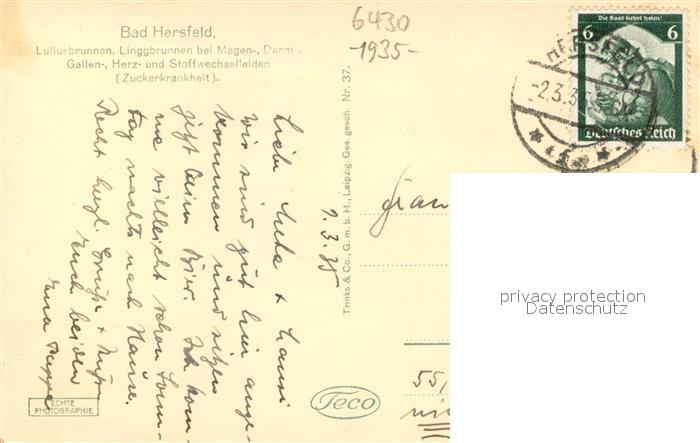 Bad Hersfeld,
Lullusbrunnen, Linggbrunnen bei Magen-, Darm-,
Gallen-, Herz- und Stoffwechselleiden
(Zuckerkrankheit).
6430
-1935-
Die Saar kehrt heim!
6 6
Deutsches Reich
HERSFELD
-2.3.35
1.3.35
Liebe + Hansi
Wir sind gut hier ange-
kommen und sitzen
jetzt beim Bier. Ich kom-
me vielleicht schon Sonn-
tag nachts nach Hause.
Recht herzl. Grüße + Küsse
Euch beiden
Euer Pappa
Trinks & Co., G.m.b.H., Leipzig. Ges. gesch. Nr. 37.
Frau
privacy protection
Datenschutz
55,
Teco
ECHTE
PHOTOGRAPHIE